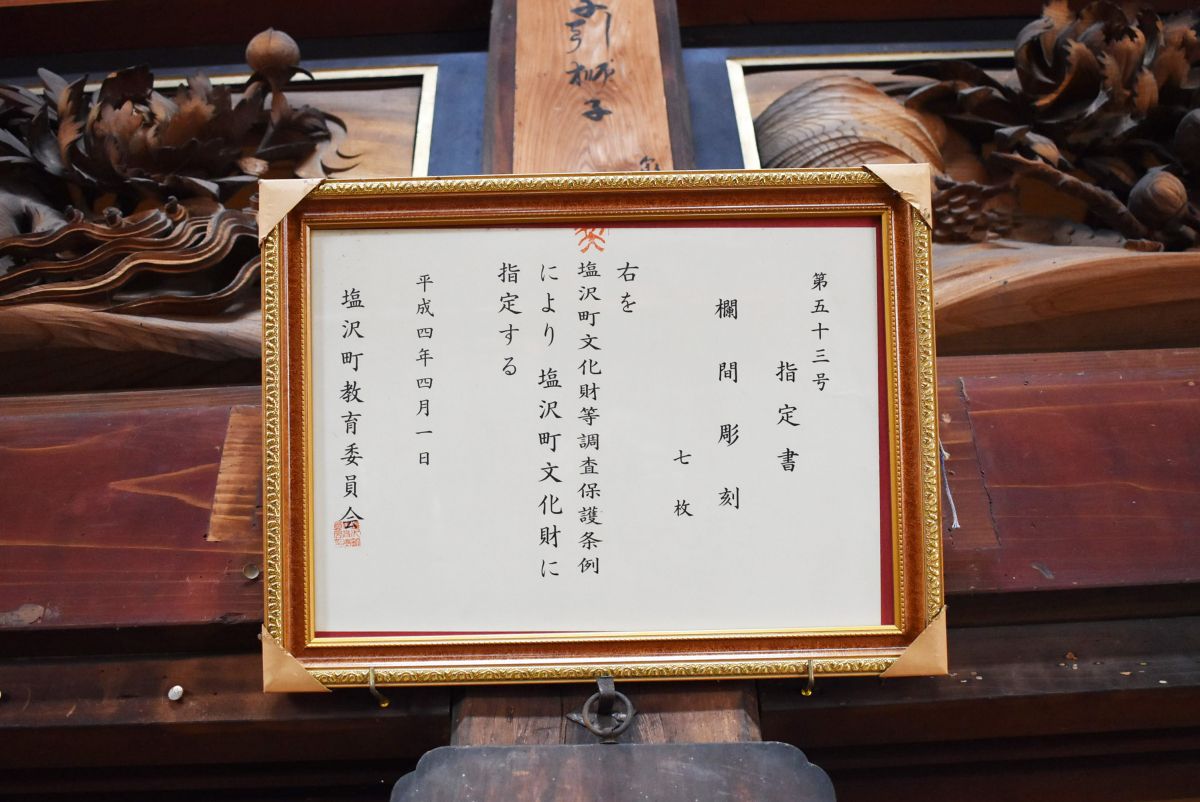 第五十三号
指定書
欄間彫刻
七枚
右を
塩沢町文化財等調査保護条例
により塩沢町文化財に
指定する
平成四年四月一日
塩沢町教育委員会